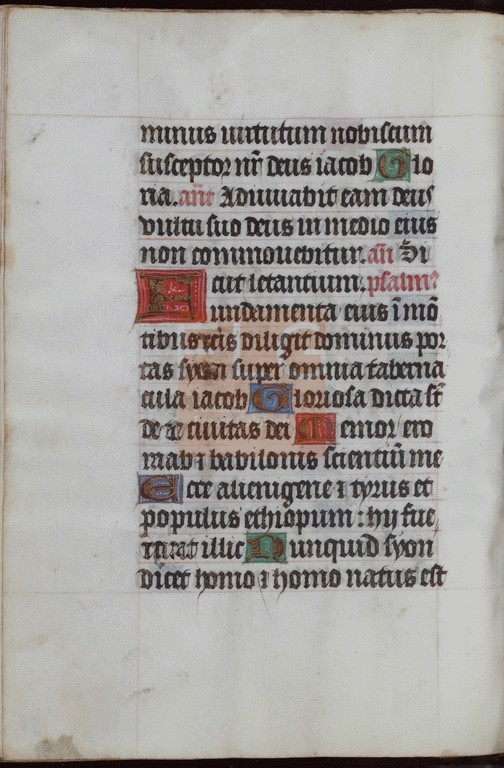 minus uirtutum nobiscum
susceptor nr̄ deus iacob Glo
ria. ant̄ Adiuuabit eam deus
vultu suo deus in medio eius
non commouebitur. an̄ Si
cut letantium. psalm⁹
Fundamenta eius ī mō
tibus sc̄is diligit dominus por
tas syon super omnia taberna
cula iacob Gloriosa dicta st̄
de te ciuitas dei Memor ero
raab ⁊ babilonis scientiū me
Ecce alienigene ⁊ tyrus et
populus ethiopum : hij fue
runt illic Nunquid syon
dicet homo ⁊ homo natus est